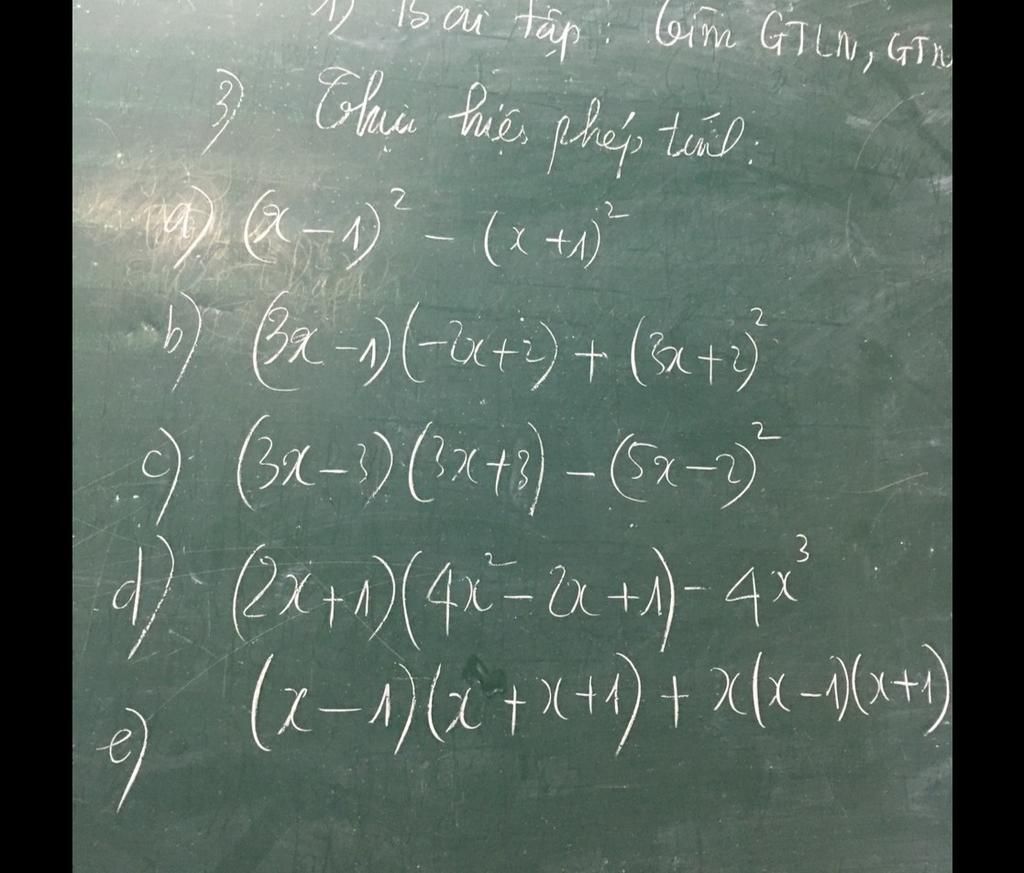 1) Bài tập: Tìm GTLN, GTN
3) Thực hiện phép tính:
a) (x - 1)² - (x + 1)²
b) (3x - 1)(-2x + 2) + (3x + 2)²
c) (3x - 3)(3x + 3) - (5x - 2)²
d) (2x + 1)(4x² - 2x + 1) - 4x³
e) (x - 1)(x + x + 1) + x(x - 1)(x + 1)